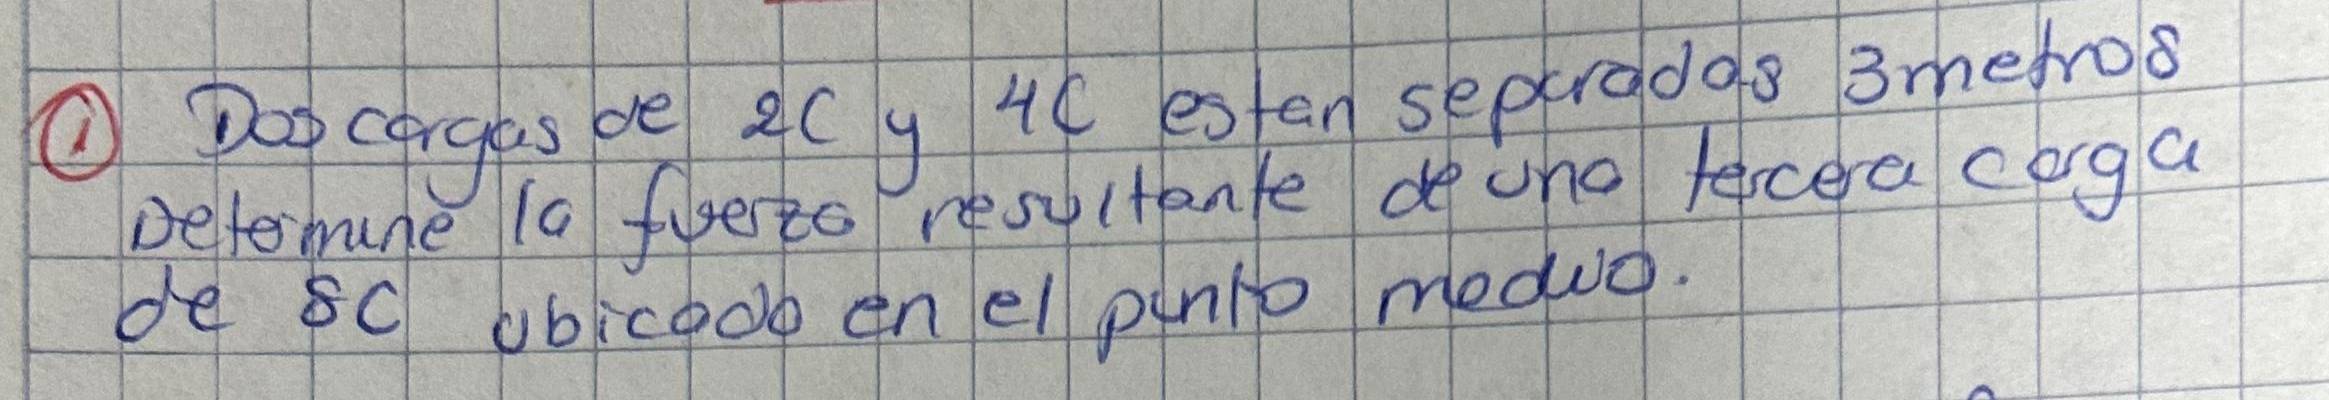 ① Dos cargas de 2C y 4C estan separadas 3metros
Determine la fuerza resultante de una tercera carga
de 8C ubicada en el punto medio.